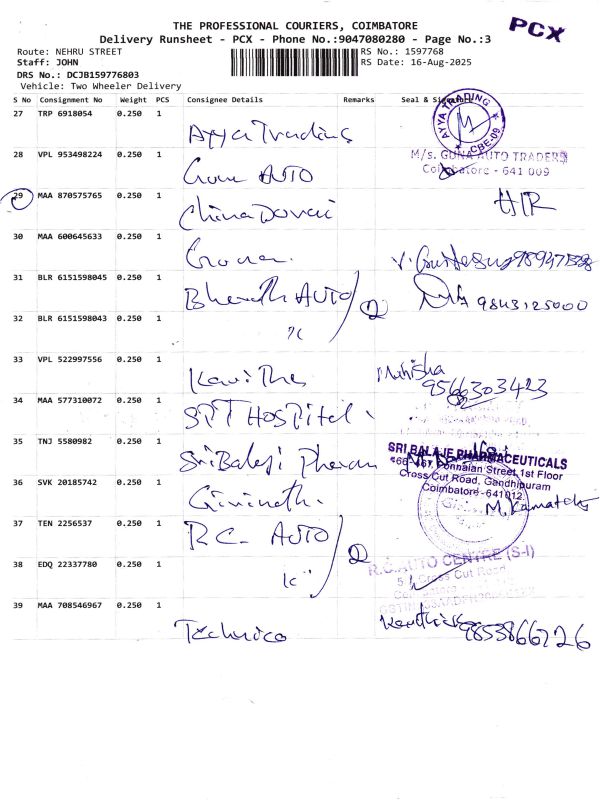 THE PROFESSIONAL COURIERS, COIMBATORE
PCX
Delivery Runsheet - PCX - Phone No.:9047080280 - Page No.:3
Route: NEHRU STREET
RS No.: 1597768
Staff: JOHN
RS Date: 16-Aug-2025
DRS No.: DCJB159776803
Vehicle: Two Wheeler Delivery
S No Consignment No Weight PCS Consignee Details Remarks Seal & Signature
27 TRP 6918054 0.250 1
Ayya Trading
AYYA TRADING
CBE-09
28 VPL 953498224 0.250 1
M/s. GUNA AUTO TRADERS
Coimbatore - 641 009
AUTO
29 MAA 870575765 0.250 1
China Dorai
H/R
30 MAA 600645633 0.250 1
31 BLR 6151598045 0.250 1
Bharath AUTO
2
9843125000
32 BLR 6151598043 0.250 1
33 VPL 522997556 0.250 1
Kavitha
Mahisha
9566303423
34 MAA 577310072 0.250 1
HOSPital
35 TNJ 5580982 0.250 1
Sri Balaji Pharam
SRI BALAJE PHARMACEUTICALS
Ponnaian Street, 1st Floor
Cross Cut Road, Gandhipuram
Coimbatore-641012
36 SVK 20185742 0.250 1
M. Kamatchi
37 TEN 2256537 0.250 1
R.C. AUTO
2
R.C.AUTO CENTRE (S-I)
Cross Cut Road
38 EDQ 22337780 0.250 1
39 MAA 708546967 0.250 1
Technico
Karthick
9853866726